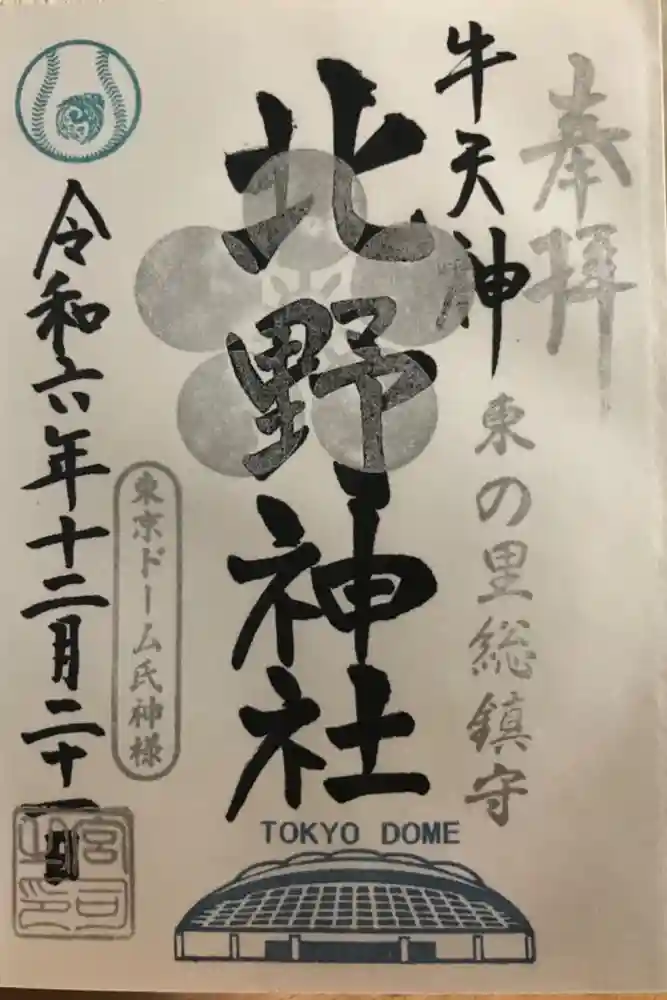 奉拝
牛天神
東の里総鎮守
北野神社
東京ドーム氏神様
令和六年十二月二十一日
TOKYO DOME
宮司之印